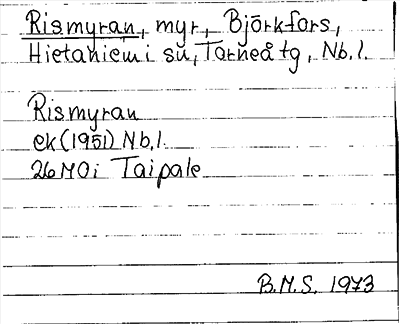 Rismyran, myr, Björkfors,
Hietaniemi sn, Torneå tg, Nb.l.
Rismyran
ek (1951) Nb.l.
26M0i Taipale
B.M.S. 1973